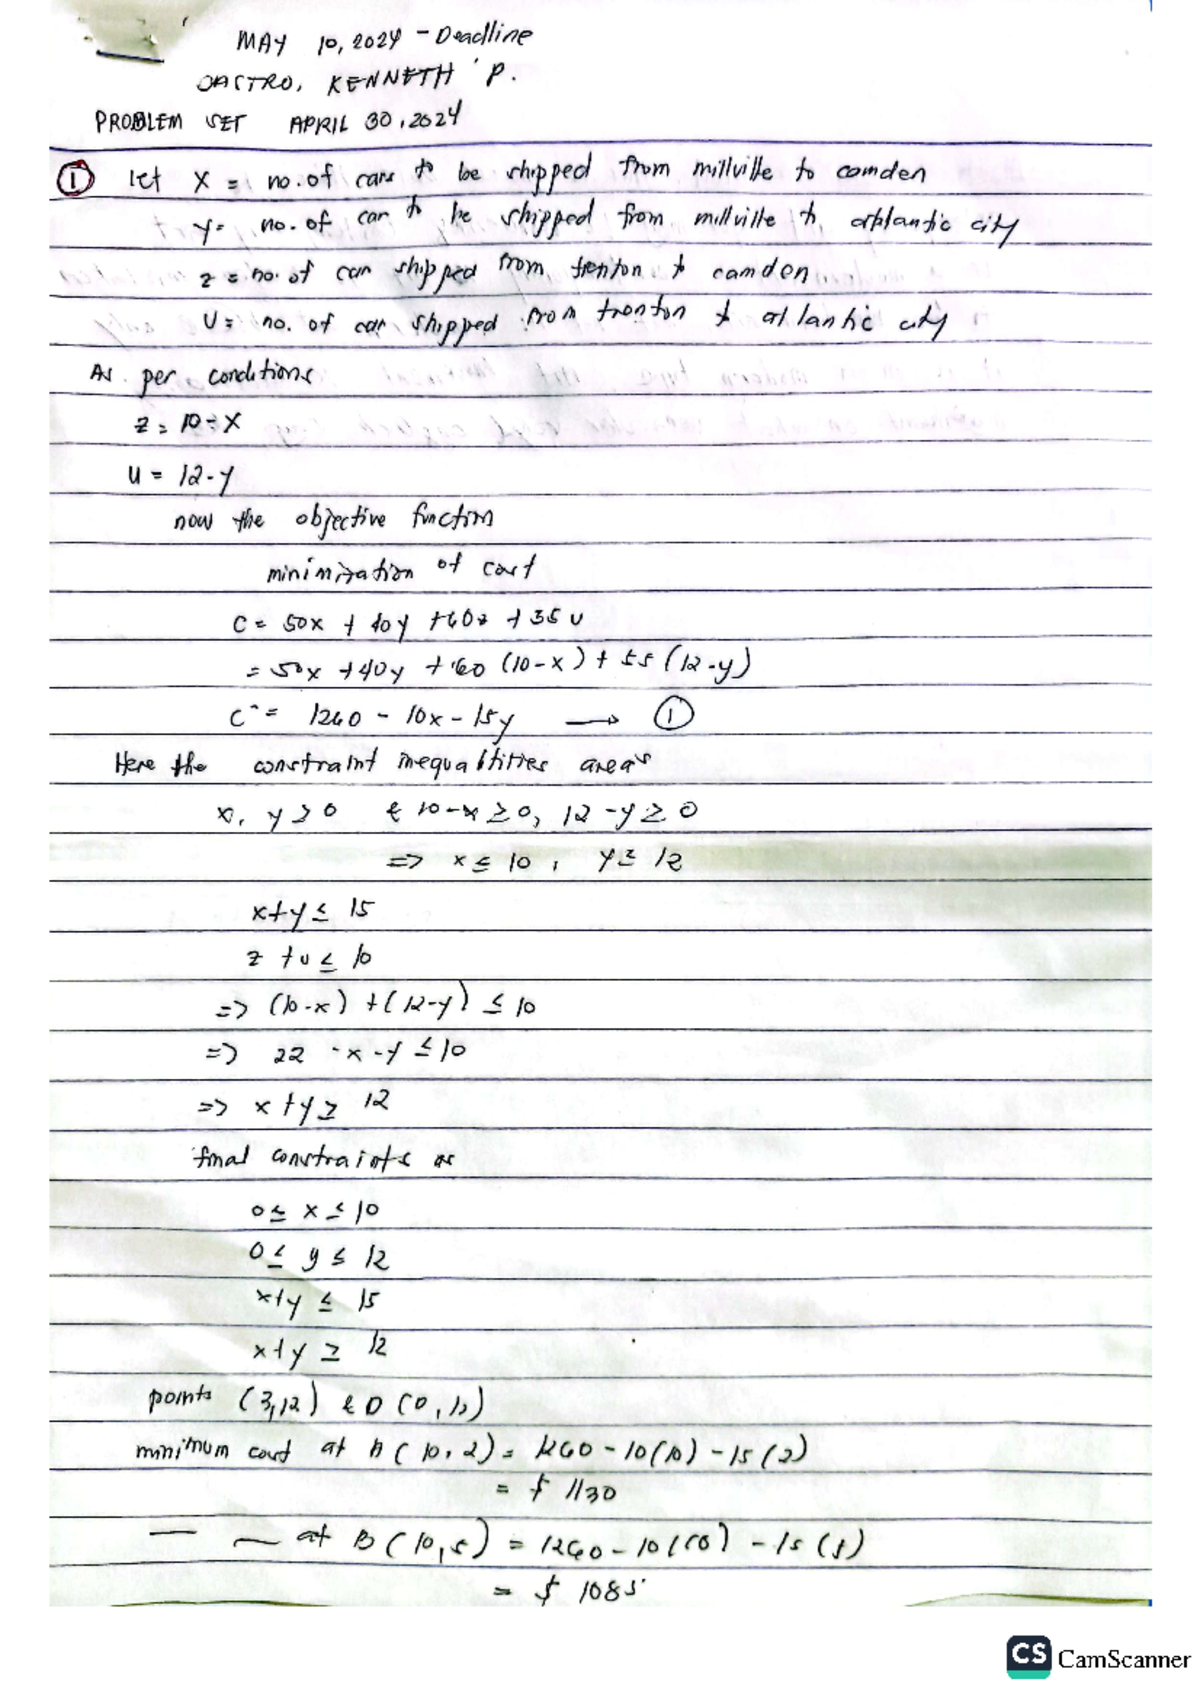 MAY 10, 2024 - Deadline
CASTRO, KENNETH P.
PROBLEM SET APRIL 30, 2024
① let X = no. of cars to be shipped from millville to camden
y = no. of car to be shipped from millville to atlantic city
z = no. of car shipped from trenton to camden
U = no. of car shipped from trenton to atlantic city
As per conditions
z = 10 - X
u = 12 - y
now the objective function
minimization of cost
C = 50x + 40y + 60z + 35u
= 50x + 40y + 60 (10-x) + 55 (12-y)
C = 1260 - 10x - 15y → ①
Here the constraint inequalities areas
x, y > 0 & 10-x ≥ 0, 12-y ≥ 0
=> x ≤ 10, y ≤ 12
x+y ≤ 15
z + u ≤ 10
=> (10-x) + (12-y) ≤ 10
=> 22 - x - y ≤ 10
=> x + y ≥ 12
final constraints as
0 ≤ x ≤ 10
0 ≤ y ≤ 12
x+y ≤ 15
x+y ≥ 12
points (3,12) & D (0, 12)
minimum cost at A (10, 2) = 1260 - 10(10) - 15(2)
= $ 1130
— — at B (10, 5) = 1260 - 10(10) - 15(5)
= $ 1085
CS CamScanner